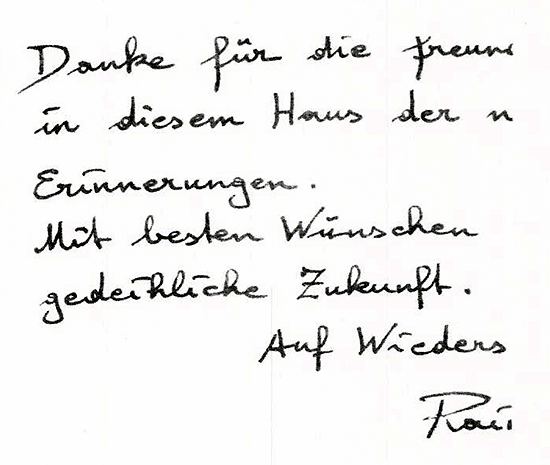 Danke für die freun
in diesem Haus der n
Erinnerungen.
Mit besten Wünschen
gedeihliche Zukunft.
Auf Wieders